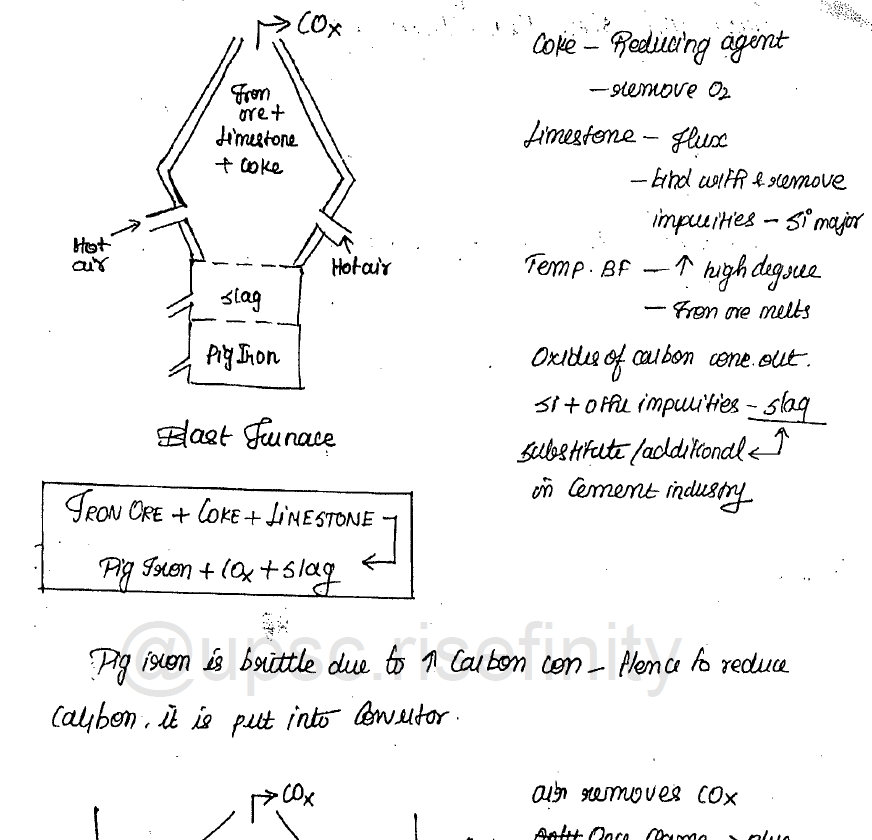 COx
Iron
ore +
Limestone
+ Coke
Hot
air
Hot air
slag
Pig Iron
Blast Furnace
IRON ORE + COKE + LIMESTONE
Pig Iron + COx + slag
Coke – Reducing agent
– remove O2
Limestone – flux
– bind with & remove
impurities – Si major
Temp. BF – ↑ high degree
– Iron ore melts
Oxides of carbon come out.
Si + other impurities – slag
substitute/additional
in Cement industry
@upsc.risefinity
Pig iron is brittle due to ↑ Carbon con – Hence to reduce
Carbon, it is put into Convertor.
COx
air removes COx
Once